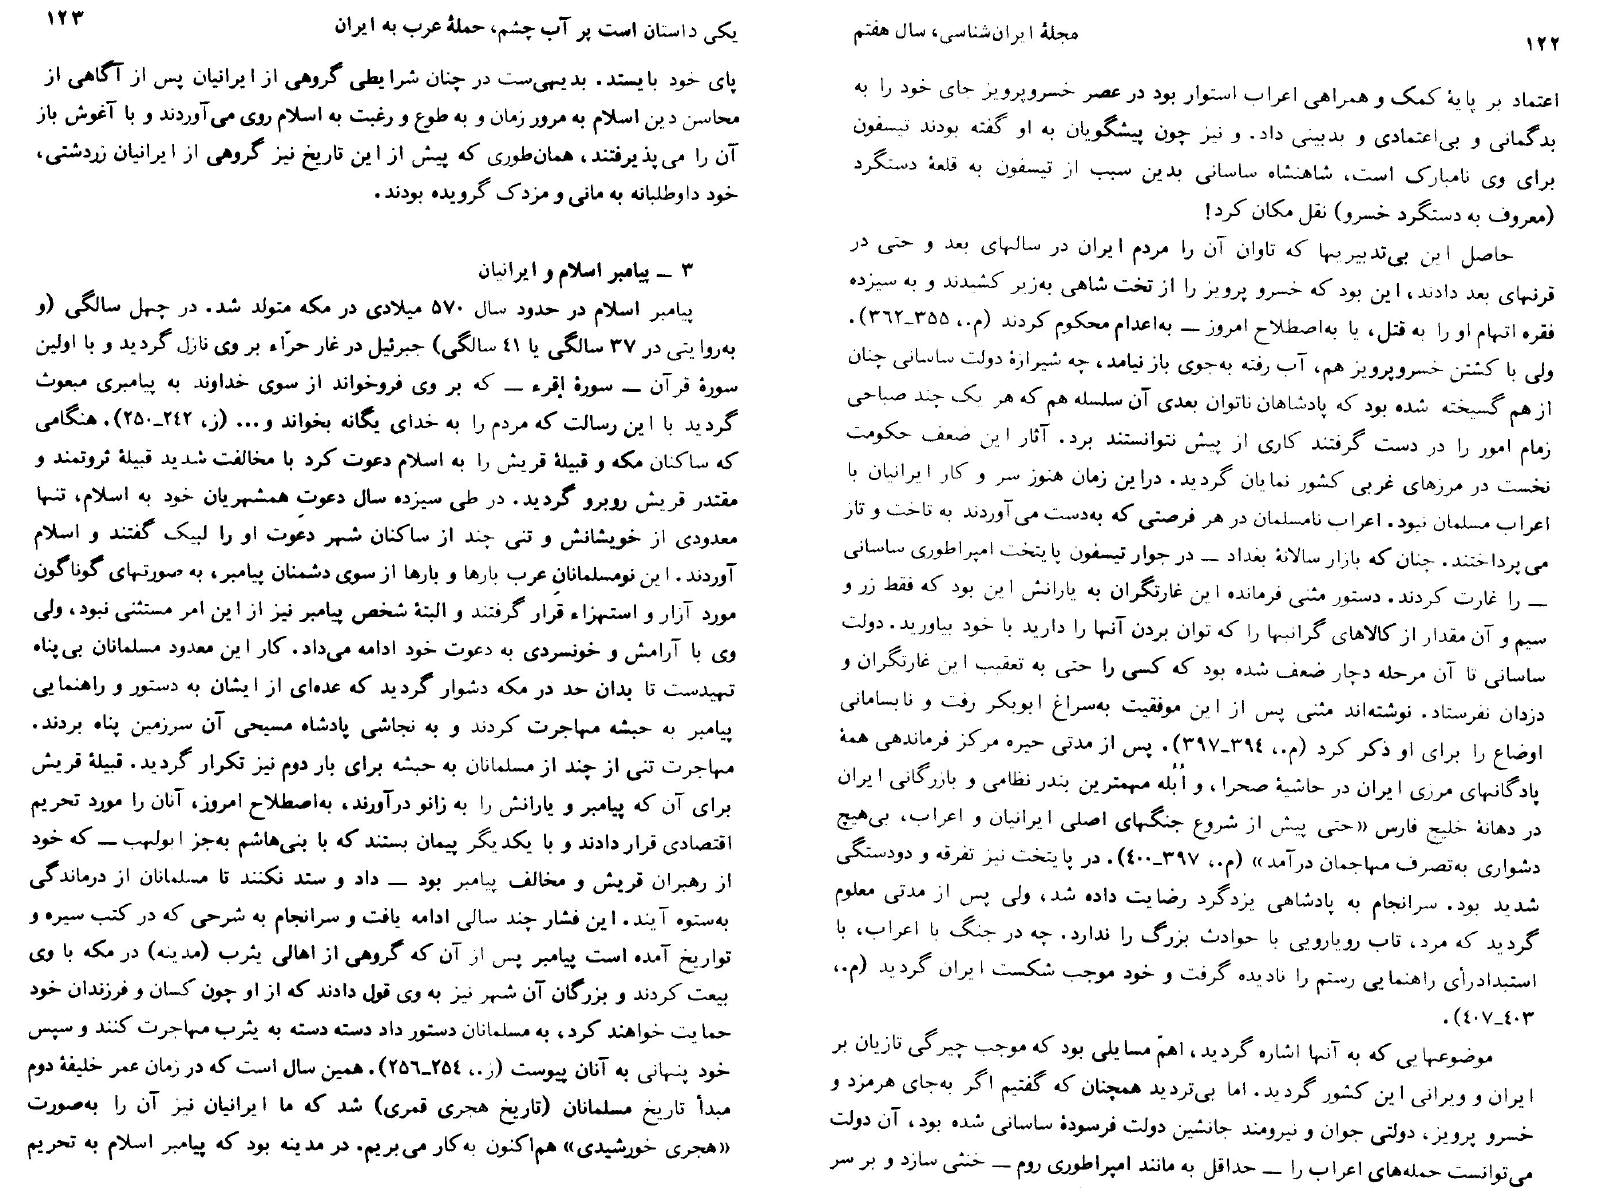 ۱۲۲
مجلهٔ ایران‌شناسی، سال هفتم
اعتماد بر پایهٔ کمک و همراهی اعراب استوار بود در عصر خسروپرویز جای خود را به
بدگمانی و بی‌اعتمادی و بدبینی داد. و نیز چون پیشگویان به او گفته بودند تیسفون
برای وی نامبارک است، شاهنشاه ساسانی بدین سبب از تیسفون به قلعهٔ دستگرد
(معروف به دستگرد خسرو) نقل مکان کرد!
حاصل این بی‌تدبیریها که تاوان آن را مردم ایران در سالهای بعد و حتی در
قرنهای بعد دادند، این بود که خسرو پرویز را از تخت شاهی به‌زیر کشیدند و به سیزده
فقره اتهام او را به قتل، یا به‌اصطلاح امروز ــ به‌اعدام محکوم کردند (م.، ۳۵۵ـ۳۶۲).
ولی با کشتن خسروپرویز هم، آب رفته به‌جوی باز نیامد، چه شیرازهٔ دولت ساسانی چنان
از هم گسیخته شده بود که پادشاهان ناتوان بعدی آن سلسله هم که هر یک چند صباحی
زمام امور را در دست گرفتند کاری از پیش نتوانستند برد. آثار این ضعف حکومت
نخست در مرزهای غربی کشور نمایان گردید. دراین زمان هنوز سر و کار ایرانیان با
اعراب مسلمان نبود. اعراب نامسلمان در هر فرصتی که به‌دست می‌آوردند به تاخت و تاز
می‌پرداختند. چنان که بازار سالانهٔ بغداد ــ در جوار تیسفون پایتخت امپراطوری ساسانی
ــ را غارت کردند. دستور مثنی فرمانده این غارتگران به یارانش این بود که فقط زر و
سیم و آن مقدار از کالاهای گرانبها را که توان بردن آنها را دارید با خود بیاورید. دولت
ساسانی تا آن مرحله دچار ضعف شده بود که کسی را حتی به تعقیب این غارتگران و
دزدان نفرستاد. نوشته‌اند مثنی پس از این موفقیت به‌سراغ ابوبکر رفت و نابسامانی
اوضاع را برای او ذکر کرد (م.، ۳۹۴ـ۳۹۷). پس از مدتی حیره مرکز فرماندهی همهٔ
پادگانهای مرزی ایران در حاشیهٔ صحرا، و اُبُله مهمترین بندر نظامی و بازرگانی ایران
در دهانهٔ خلیج فارس «حتی پیش از شروع جنگهای اصلی ایرانیان و اعراب، بی‌هیچ
دشواری به‌تصرف مهاجمان درآمد» (م.، ۳۹۷ـ۴۰۰). در پایتخت نیز تفرقه و دودستگی
شدید بود. سرانجام به پادشاهی یزدگرد رضایت داده شد، ولی پس از مدتی معلوم
گردید که مرد، تاب رویارویی با حوادث بزرگ را ندارد. چه در جنگ با اعراب، با
استبدادرأی راهنمایی رستم را نادیده گرفت و خود موجب شکست ایران گردید (م.،
۴۰۳ـ۴۰۷).
موضوعهایی که به آنها اشاره گردید، اهمّ مسایلی بود که موجب چیرگی تازیان بر
ایران و ویرانی این کشور گردید. اما بی‌تردید همچنان که گفتیم اگر به‌جای هرمزد و
خسرو پرویز، دولتی جوان و نیرومند جانشین دولت فرسودهٔ ساسانی شده بود، آن دولت
می‌توانست حمله‌های اعراب را ــ حداقل به مانند امپراطوری روم ــ خنثی سازد و بر سر
یکی داستان است پر آب چشم، حملهٔ عرب به ایران
۱۲۳
پای خود بایستد. بدیهی‌ست در چنان شرایطی گروهی از ایرانیان پس از آگاهی از
محاسن دین اسلام به مرور زمان و به طوع و رغبت به اسلام روی می‌آوردند و با آغوش باز
آن را می‌پذیرفتند، همان‌طوری که پیش از این تاریخ نیز گروهی از ایرانیان زردشتی،
خود داوطلبانه به مانی و مزدک گرویده بودند.
۳ ــ پیامبر اسلام و ایرانیان
پیامبر اسلام در حدود سال ۵۷۰ میلادی در مکه متولد شد. در چهل سالگی (و
به‌روایتی در ۳۷ سالگی یا ۴۱ سالگی) جبرئیل در غار حرّاء بر وی نازل گردید و با اولین
سورهٔ قرآن ــ سورهٔ إقرء ــ که بر وی فروخواند از سوی خداوند به پیامبری مبعوث
گردید با این رسالت که مردم را به خدای یگانه بخواند و... (ز، ۲۴۲ـ۲۵۰). هنگامی
که ساکنان مکه و قبیلهٔ قریش را به اسلام دعوت کرد با مخالفت شدید قبیلهٔ ثروتمند و
مقتدر قریش روبرو گردید. در طی سیزده سال دعوتِ همشهریان خود به اسلام، تنها
معدودی از خویشانش و تنی چند از ساکنان شهر دعوت او را لبیک گفتند و اسلام
آوردند. این نومسلمانانِ عرب بارها و بارها از سوی دشمنان پیامبر، به صورتهای گوناگون
مورد آزار و استهزاء قرار گرفتند و البتهٔ شخص پیامبر نیز از این امر مستثنی نبود، ولی
وی با آرامش و خونسردی به دعوت خود ادامه می‌داد. کار این معدود مسلمانان بی‌پناه
تهیدست تا بدان حد در مکه دشوار گردید که عده‌ای از ایشان به دستور و راهنمایی
پیامبر به حبشه مهاجرت کردند و به نجاشی پادشاه مسیحی آن سرزمین پناه بردند.
مهاجرت تنی از چند از مسلمانان به حبشه برای بار دوم نیز تکرار گردید. قبیلهٔ قریش
برای آن که پیامبر و یارانش را به زانو درآورند، به‌اصطلاح امروز، آنان را مورد تحریم
اقتصادی قرار دادند و با یکدیگر پیمان بستند که با بنی‌هاشم به‌جز ابولهب ــ که خود
از رهبران قریش و مخالف پیامبر بود ــ داد و ستد نکنند تا مسلمانان از درماندگی
به‌ستوه آیند. این فشار چند سالی ادامه یافت و سرانجام به شرحی که در کتب سیره و
تواریخ آمده است پیامبر پس از آن که گروهی از اهالی یثرب (مدینه) در مکه با وی
بیعت کردند و بزرگان آن شهر نیز به وی قول دادند که از او چون کسان و فرزندان خود
حمایت خواهند کرد، به مسلمانان دستور داد دسته دسته به یثرب مهاجرت کنند و سپس
خود پنهانی به آنان پیوست (ز.، ۲۵۴ـ۲۵۶). همین سال است که در زمان عمر خلیفهٔ دوم
مبدأ تاریخ مسلمانان (تاریخ هجری قمری) شد که ما ایرانیان نیز آن را به‌صورت
«هجری خورشیدی» هم‌اکنون به‌کار می‌بریم. در مدینه بود که پیامبر اسلام به تحریم